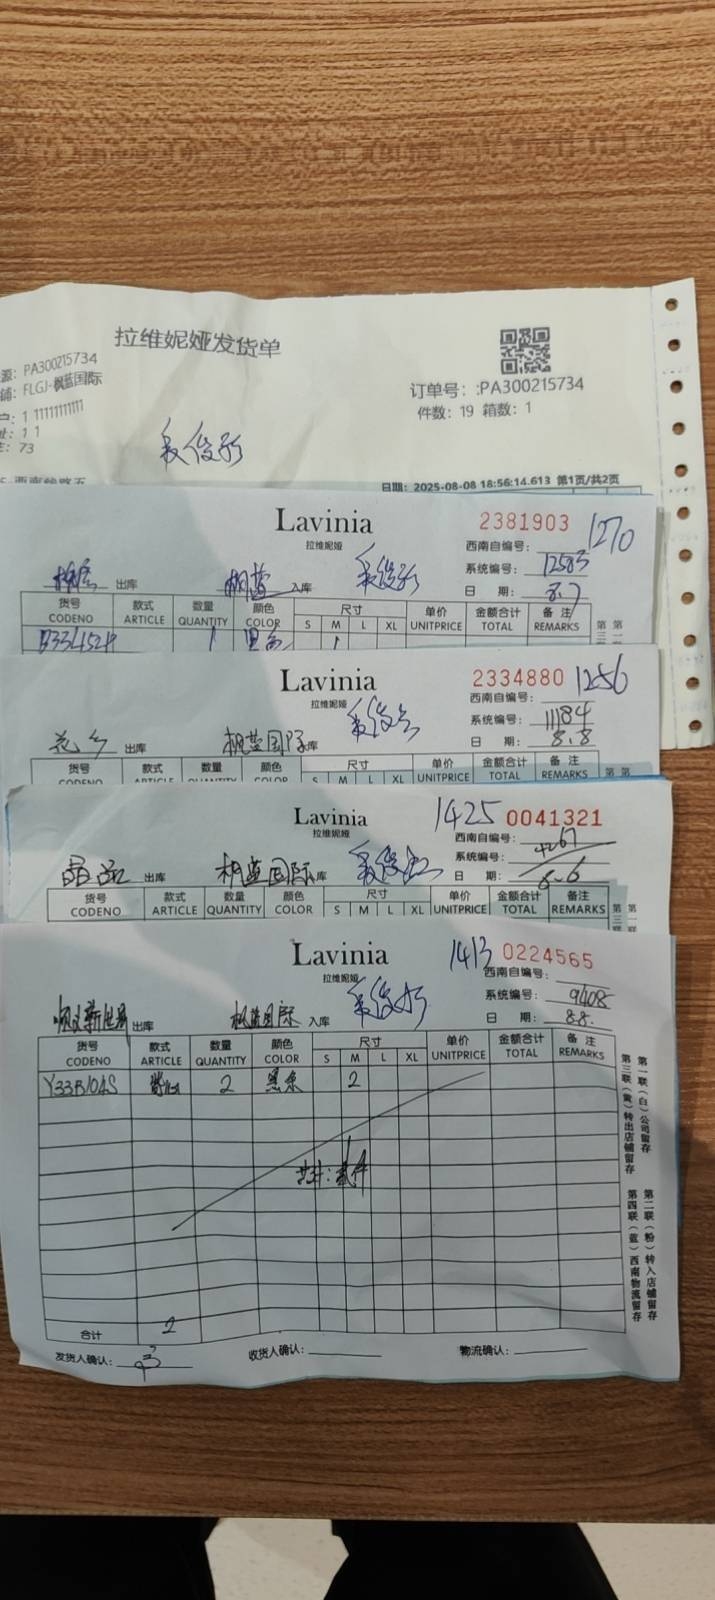 拉维妮娅发货单
源: PA300215734
铺: FLGJ-枫蓝国际
户: 1 11111111111
址: 1 1
: 73
订单号: :PA300215734
件数: 19 箱数: 1
西南线路五
日期: 2025-08-08 18:56:14.613 第1页/共2页
Lavinia
拉维妮娅
2381903
1270
西南自编号:
系统编号: 12583
日 期: 8.7
出库 枫蓝 入库
货号 款式 数量 颜色 尺寸 单价 金额合计 备注
CODENO ARTICLE QUANTITY COLOR S M L XL UNITPRICE TOTAL REMARKS
1 黑色 1
Lavinia
拉维妮娅
2334880
1256
西南自编号:
系统编号: 11184
日 期: 8.8
花乡 出库 枫蓝国际 库
货号 款式 数量 颜色 尺寸 单价 金额合计 备注
CODENO ARTICLE QUANTITY COLOR S M L XL UNITPRICE TOTAL REMARKS
Lavinia
拉维妮娅
1425 0041321
西南自编号:
系统编号: 4267
日 期: 8.6
晶品 出库 枫蓝国际 库
货号 款式 数量 颜色 尺寸 单价 金额合计 备注
CODENO ARTICLE QUANTITY COLOR S M L XL UNITPRICE TOTAL REMARKS
Lavinia
拉维妮娅
1413 0224565
西南自编号:
系统编号: 9408
日 期: 8.8.
顺义新世界 出库 枫蓝国际 入库
货号 款式 数量 颜色 尺寸 单价 金额合计 备注
CODENO ARTICLE QUANTITY COLOR S M L XL UNITPRICE TOTAL REMARKS
Y33B104S 2 黑色 2
共计: 贰件
合计 2
发货人确认: 收货人确认: 物流确认:
第一联(白)公司留存
第二联(粉)转入店铺留存
第三联(黄)转出店铺留存
第四联(蓝)西南物流留存